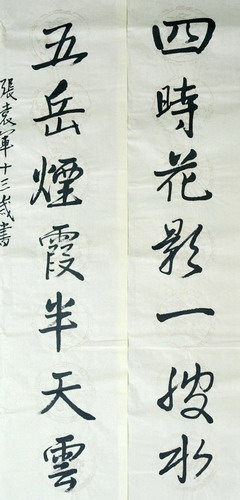 四時花影一水
五岳煙霞半天雲
張袁軍十三歲書